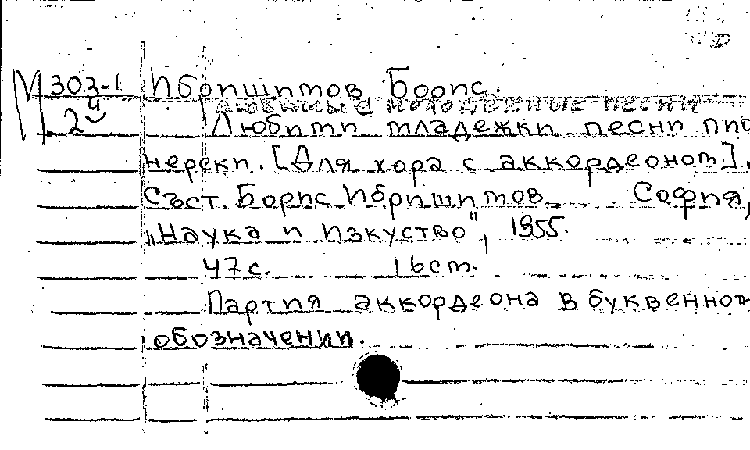 М 303-1 Ибришимов Борис.
2
Любими младежки песни пио
нерски. [Для хора с аккордеоном].
Съст. Борис Ибришимов. София,
„Наука и изкуство", 1955.
47 с. 16 см.
Партия аккордеона в буквенном
обозначении.